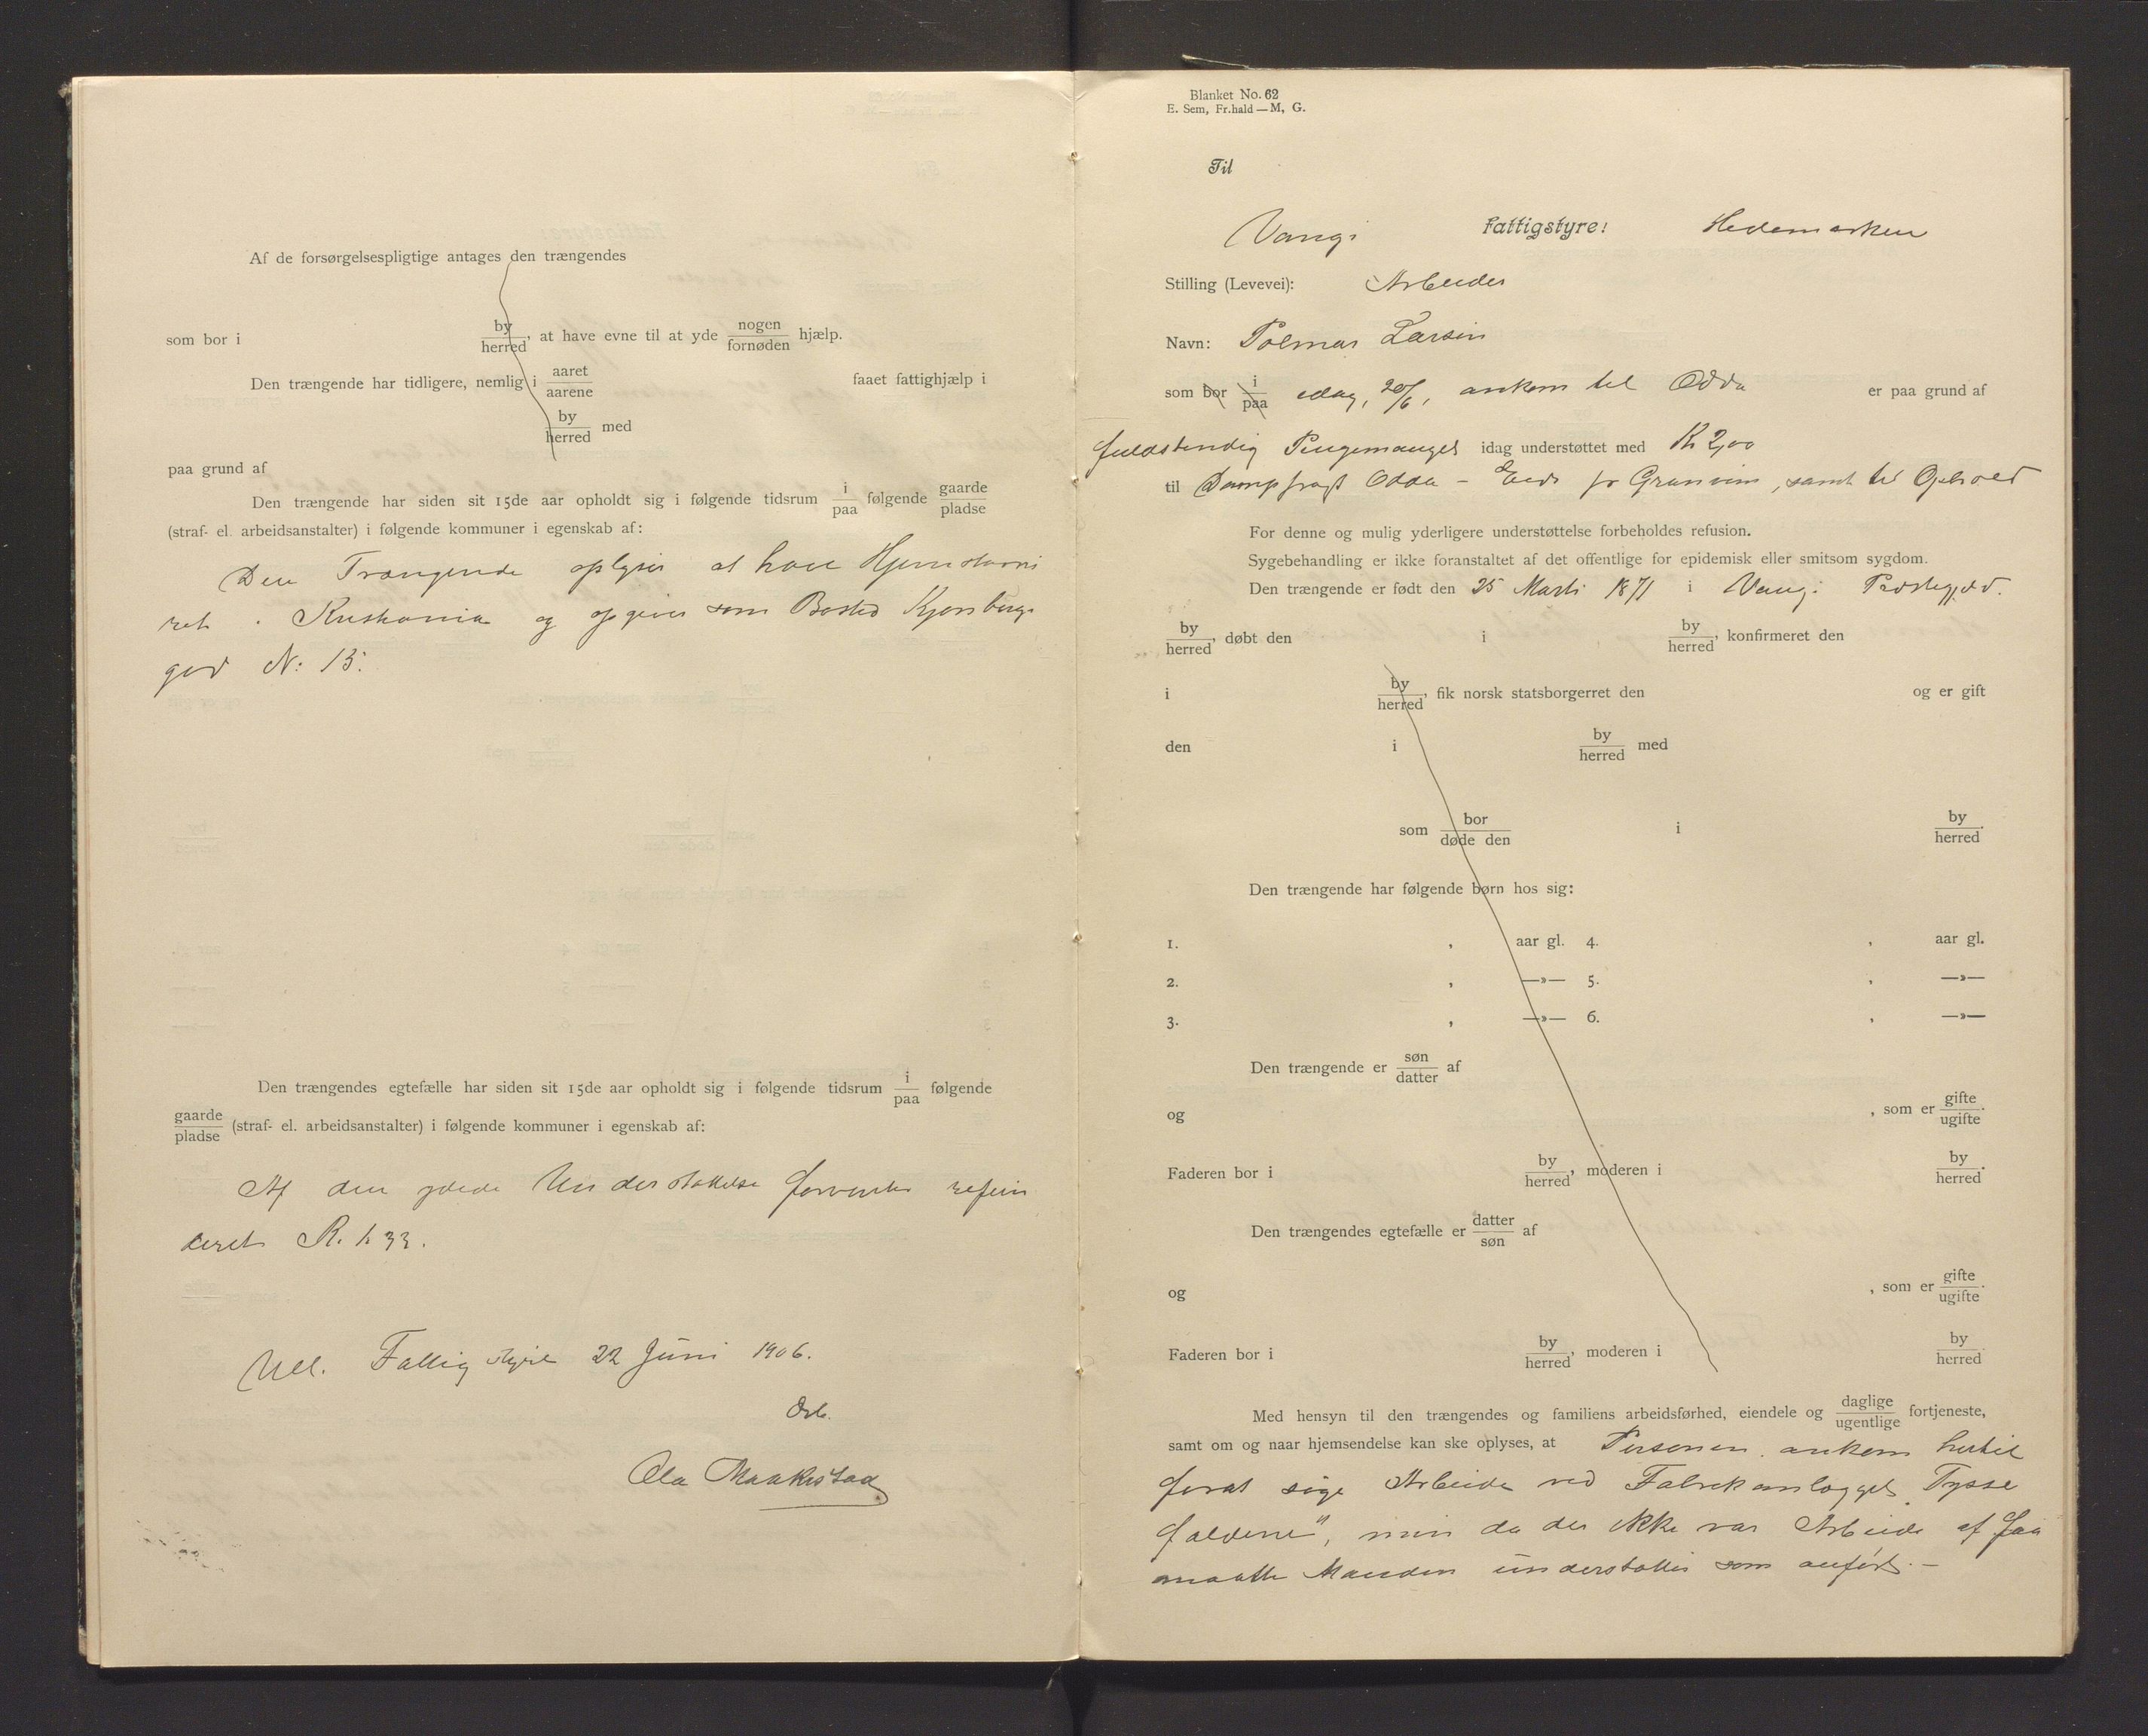 Af de forsørgelsespligtige antages den trængendes
som bor i by/herred, at have evne til at yde nogen/fornøden hjælp.
Den trængende har tidligere, nemlig i aaret/aarene faaet fattighjælp i
by/herred med
paa grund af
Den trængende har siden sit 15de aar opholdt sig i følgende tidsrum i/paa følgende gaarde/pladse
(straf- el. arbeidsanstalter) i følgende kommuner i egenskab af:
Den Trængende oplyser at have Hjemstavns
ret i Kristiania og opgiver som Bosted
gad N: 15.
Den trængendes egtefælle har siden sit 15de aar opholdt sig i følgende tidsrum i/paa følgende
gaarde/pladse (straf- el. arbeidsanstalter) i følgende kommuner i egenskab af:
Af den ydede Understøttelse forventes refun
deret 1.33.
Ull. Fattigstyre 22 Juni 1906.
Ola Maakestad
Blanket No. 62
E. Sem, Fr.hald—M, G.
Til
Vangs Fattigstyre! Hedemarken
Stilling (Levevei): Arbeider
Navn: Larsen
som bor i/paa idag, 20/6, ankom til Odda er paa grund af
fuldstendig Pengemangel idag understøttet med Kr 2,00
til Dampfragt Odda – Eide pr Granvin, samt til Ophold
For denne og mulig yderligere understøttelse forbeholdes refusion.
Sygebehandling er ikke foranstaltet af det offentlige for epidemisk eller smitsom sygdom.
Den trængende er født den 25 Marts 1871 i Vangs Prestegjæld.
by/herred, døbt den i by/herred, konfirmeret den
i by/herred, fik norsk statsborgerret den og er gift
den i by/herred med
som bor/døde den i by/herred.
Den trængende har følgende børn hos sig:
1. , aar gl. 4. , aar gl.
2. , —»— 5. , —»—
3. , —»— 6. , —»—
Den trængende er søn/datter af
og , som er gifte/ugifte.
Faderen bor i by/herred, moderen i by/herred.
Den trængendes egtefælle er datter/søn af
og , som er gifte/ugifte.
Faderen bor i by/herred, moderen i by/herred.
Med hensyn til den trængendes og familiens arbeidsførhed, eiendele og daglige/ugentlige fortjeneste,
samt om og naar hjemsendelse kan ske oplyses, at Personen ankom hertil
forat søge Arbeide ved Fabrikanlægget „Tysse
faldene", men da der ikke var Arbeide at faa
maatte Manden understøttes som anført. –